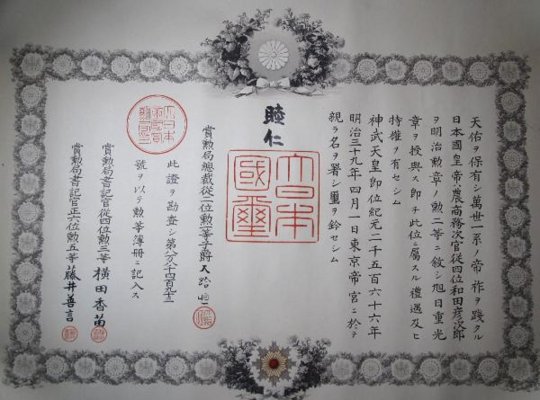 天佑ヲ保有シ萬世一系ノ帝祚ヲ踐タル
日本國皇帝ハ農商務次官從四位和田彦次郎
ヲ明治勲章ノ勲二等ニ敘シ旭日重光
章ヲ授與ス即チ此位ニ屬スル禮遇及ヒ
特權ヲ有セシム
神武天皇即位紀元二千五百六十六年
明治三十九年四月一日東京帝宮ニ於テ
親ラ名ヲ署シ璽ヲ鈐セシム
睦仁
大日本國璽
賞勲局總裁從二位勲一等子爵大給恒
此證ヲ勘査シ第八百九十三
號ヲ以テ勲等簿册ニ記入ス
賞勲局書記官從四位勲三等 横田香苗
賞勲局書記官正六位勲五等 藤井善言